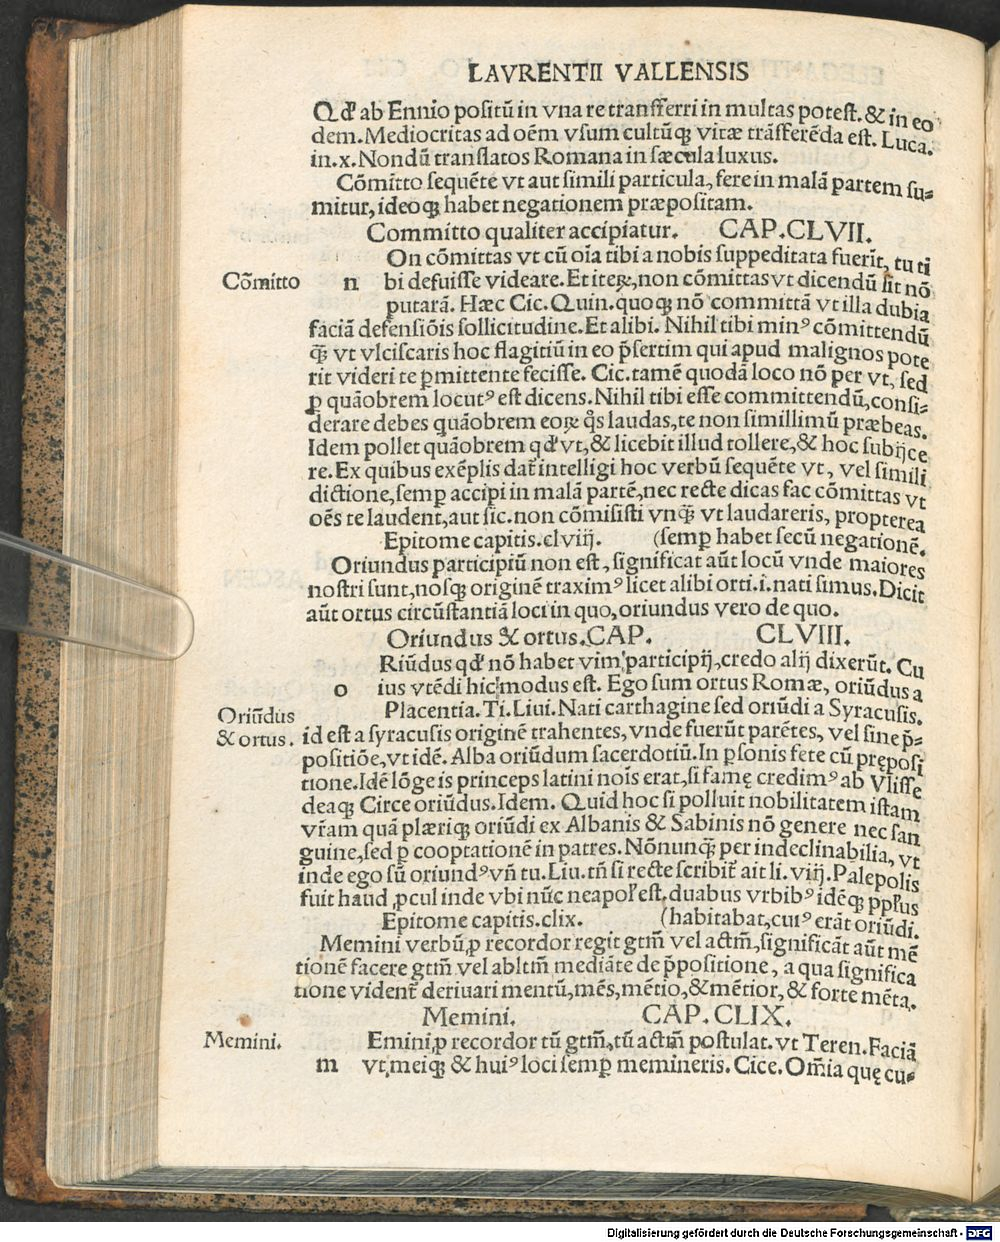 LAVRENTII VALLENSIS
Qđ ab Ennio positū in vna re transferri in multas potest. & in eo
dem. Mediocritas ad oēm vsum cultūq; vitæ trāsferēda est. Luca.
in.x. Nondū translatos Romana in sæcula luxus.
Cōmitto sequēte vt aut simili particula, fere in malā partem su-
mitur, ideoq; habet negationem præpositam.
Committo qualiter accipiatur. CAP. CLVII.
On cōmittas vt cū oīa tibi a nobis suppeditata fuerīt, tu ti
Cōmitto n bi defuisse videare. Et iteꝝ, non cōmittas vt dicendū sit nō
putarā. Hæc Cic. Quin. quoq; nō committā vt illa dubia
faciā defensiōis sollicitudine. Et alibi. Nihil tibi minꝰ cōmittendū
q̄ vt vlciscaris hoc flagitiū in eo p̄sertim qui apud malignos pote
rit videri te ꝑmittente fecisse. Cic. tamē quodā loco nō per vt, sed
ꝑ quāobrem locutꝰ est dicens. Nihil tibi esse committendū, consi-
derare debes quāobrem eoꝝ q̄s laudas, te non simillimū præbeas.
Idem pollet quāobrem qđ vt, & licebit illud tollere, & hoc subijce
re. Ex quibus exēplis dat̄ intelligi hoc verbū sequēte vt, vel simili
dictione, semꝑ accipi in malā partē, nec recte dicas fac cōmittas vt
oēs te laudent, aut sic. non cōmisisti vnq̄ vt laudareris, propterea
Epitome capitis.clviij. (semꝑ habet secū negationē.
Oriundus participiū non est, significat aūt locū vnde maiores
nostri sunt, nosq; originē traximꝰ licet alibi orti.i. nati simus. Dicit
aūt ortus circūstantiā loci in quo, oriundus vero de quo.
Oriundus & ortus. CAP. CLVIII.
Riūdus qđ nō habet vim participij, credo alij dixerūt. Cu
o ius vtēdi hic modus est. Ego sum ortus Romæ, oriūdus a
Oriūdus Placentia. Ti. Liui. Nati carthagine sed oriūdi a Syracusis.
& ortus. id est a syracusis originē trahentes, vnde fuerūt parētes, vel sine p̄-
positiōe, vt idē. Alba oriūdum sacerdotiū. In ꝑsonis fete cū pręposi
tione. Idē lōge is princeps latini noīs erat, si famę credimꝰ ab Vlisse
deaq; Circe oriūdus. Idem. Quid hoc si polluit nobilitatem istam
vr̄am quā plæriq; oriūdi ex Albanis & Sabinis nō genere nec san
guine, sed ꝑ cooptationē in patres. Nōnunq̄ per indeclinabilia, vt
inde ego sū oriundꝰ vn̄ tu. Liu. tn̄ si recte scribit̄ ait li. viij. Palepolis
fuit haud ꝓcul inde vbi nūc neapol' est. duabus vrbibꝰ idēq; pp̄lus
Epitome capitis.clix. (habitabat, cuiꝰ erāt oriūdi.
Memini verbū, ꝓ recordor regit gtm̄ vel actm̄, significāt aūt mē
tionē facere gtm̄ vel abltm̄ mediāte de p̄positione, a qua significa
tione vident̄ deriuari mentū, mēs, mētio, & mētior, & forte mēta.
Memini. CAP. CLIX.
Memini. Emini ꝓ recordor tū gtm̄, tū actm̄ postulat. vt Teren. Faciā
m vt, meiq; & huiꝰ loci semꝑ memineris. Cice. Om̄ia quę cu-
Digitalisierung gefördert durch die Deutsche Forschungsgemeinschaft - DFG